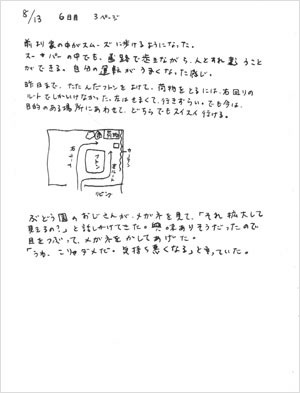 8/13 6日目 3ページ
前より家の中がスムーズに歩けるようになった。
スーパーの中でも、通路で歩きながら、人とすれ違うこと
ができる。自分の運転がうまくなった感じ。
昨日まで、たたんだフトンをよけて、荷物をとるには、右回りの
ルートでしかいけなかった。左はせまくて、行きずらい。でも今は、
目的のある場所にあわせて、どちらでもスイスイ行ける。
荷物
フトン
カーテン
リビング
ぶどう園のおじさんが、メガネを見て、「それ拡大して
見えるの?」と話しかけてきた。興味ありそうだったので
目をつぶって、メガネをかしてあげた。
「うわ、こりゃダメだ。気持ち悪くなる」と言っていた。